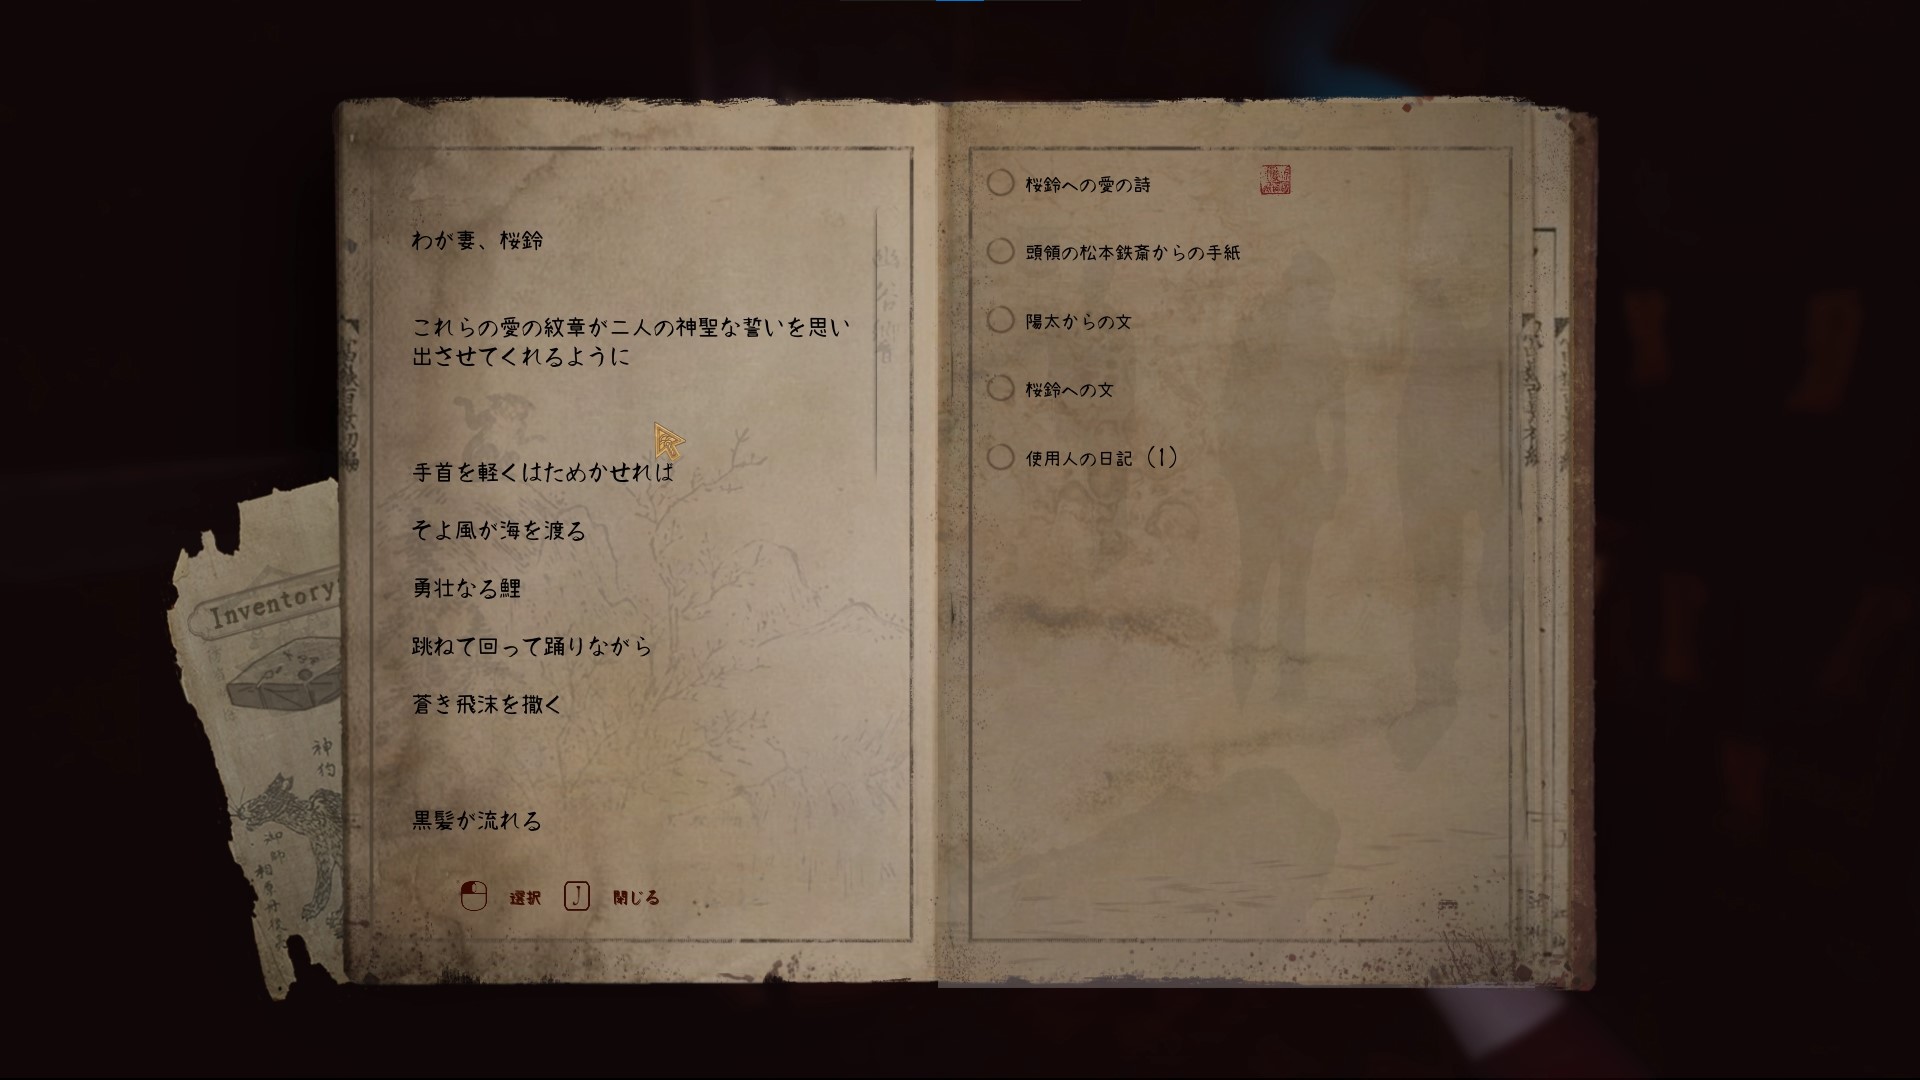 わが妻、桜鈴
これらの愛の紋章が二人の神聖な誓いを思い
出させてくれるように
手首を軽くはためかせれば
そよ風が海を渡る
勇壮なる鯉
跳ねて回って踊りながら
蒼き飛沫を撒く
黒髪が流れる
選択 J 閉じる
桜鈴への愛の詩
頭領の松本鉄斎からの手紙
陽太からの文
桜鈴への文
使用人の日記（1）
Inventory